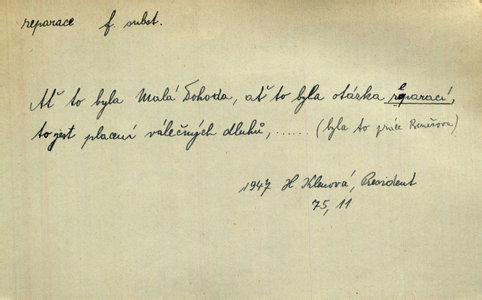 reparace f. subst.
Ať to byla Malá Dohoda, ať to byla otázka reparací,
to jest placení válečných dluhů, ...... (byla to práce Benešova)
1947 H Klenová, President
75, 11